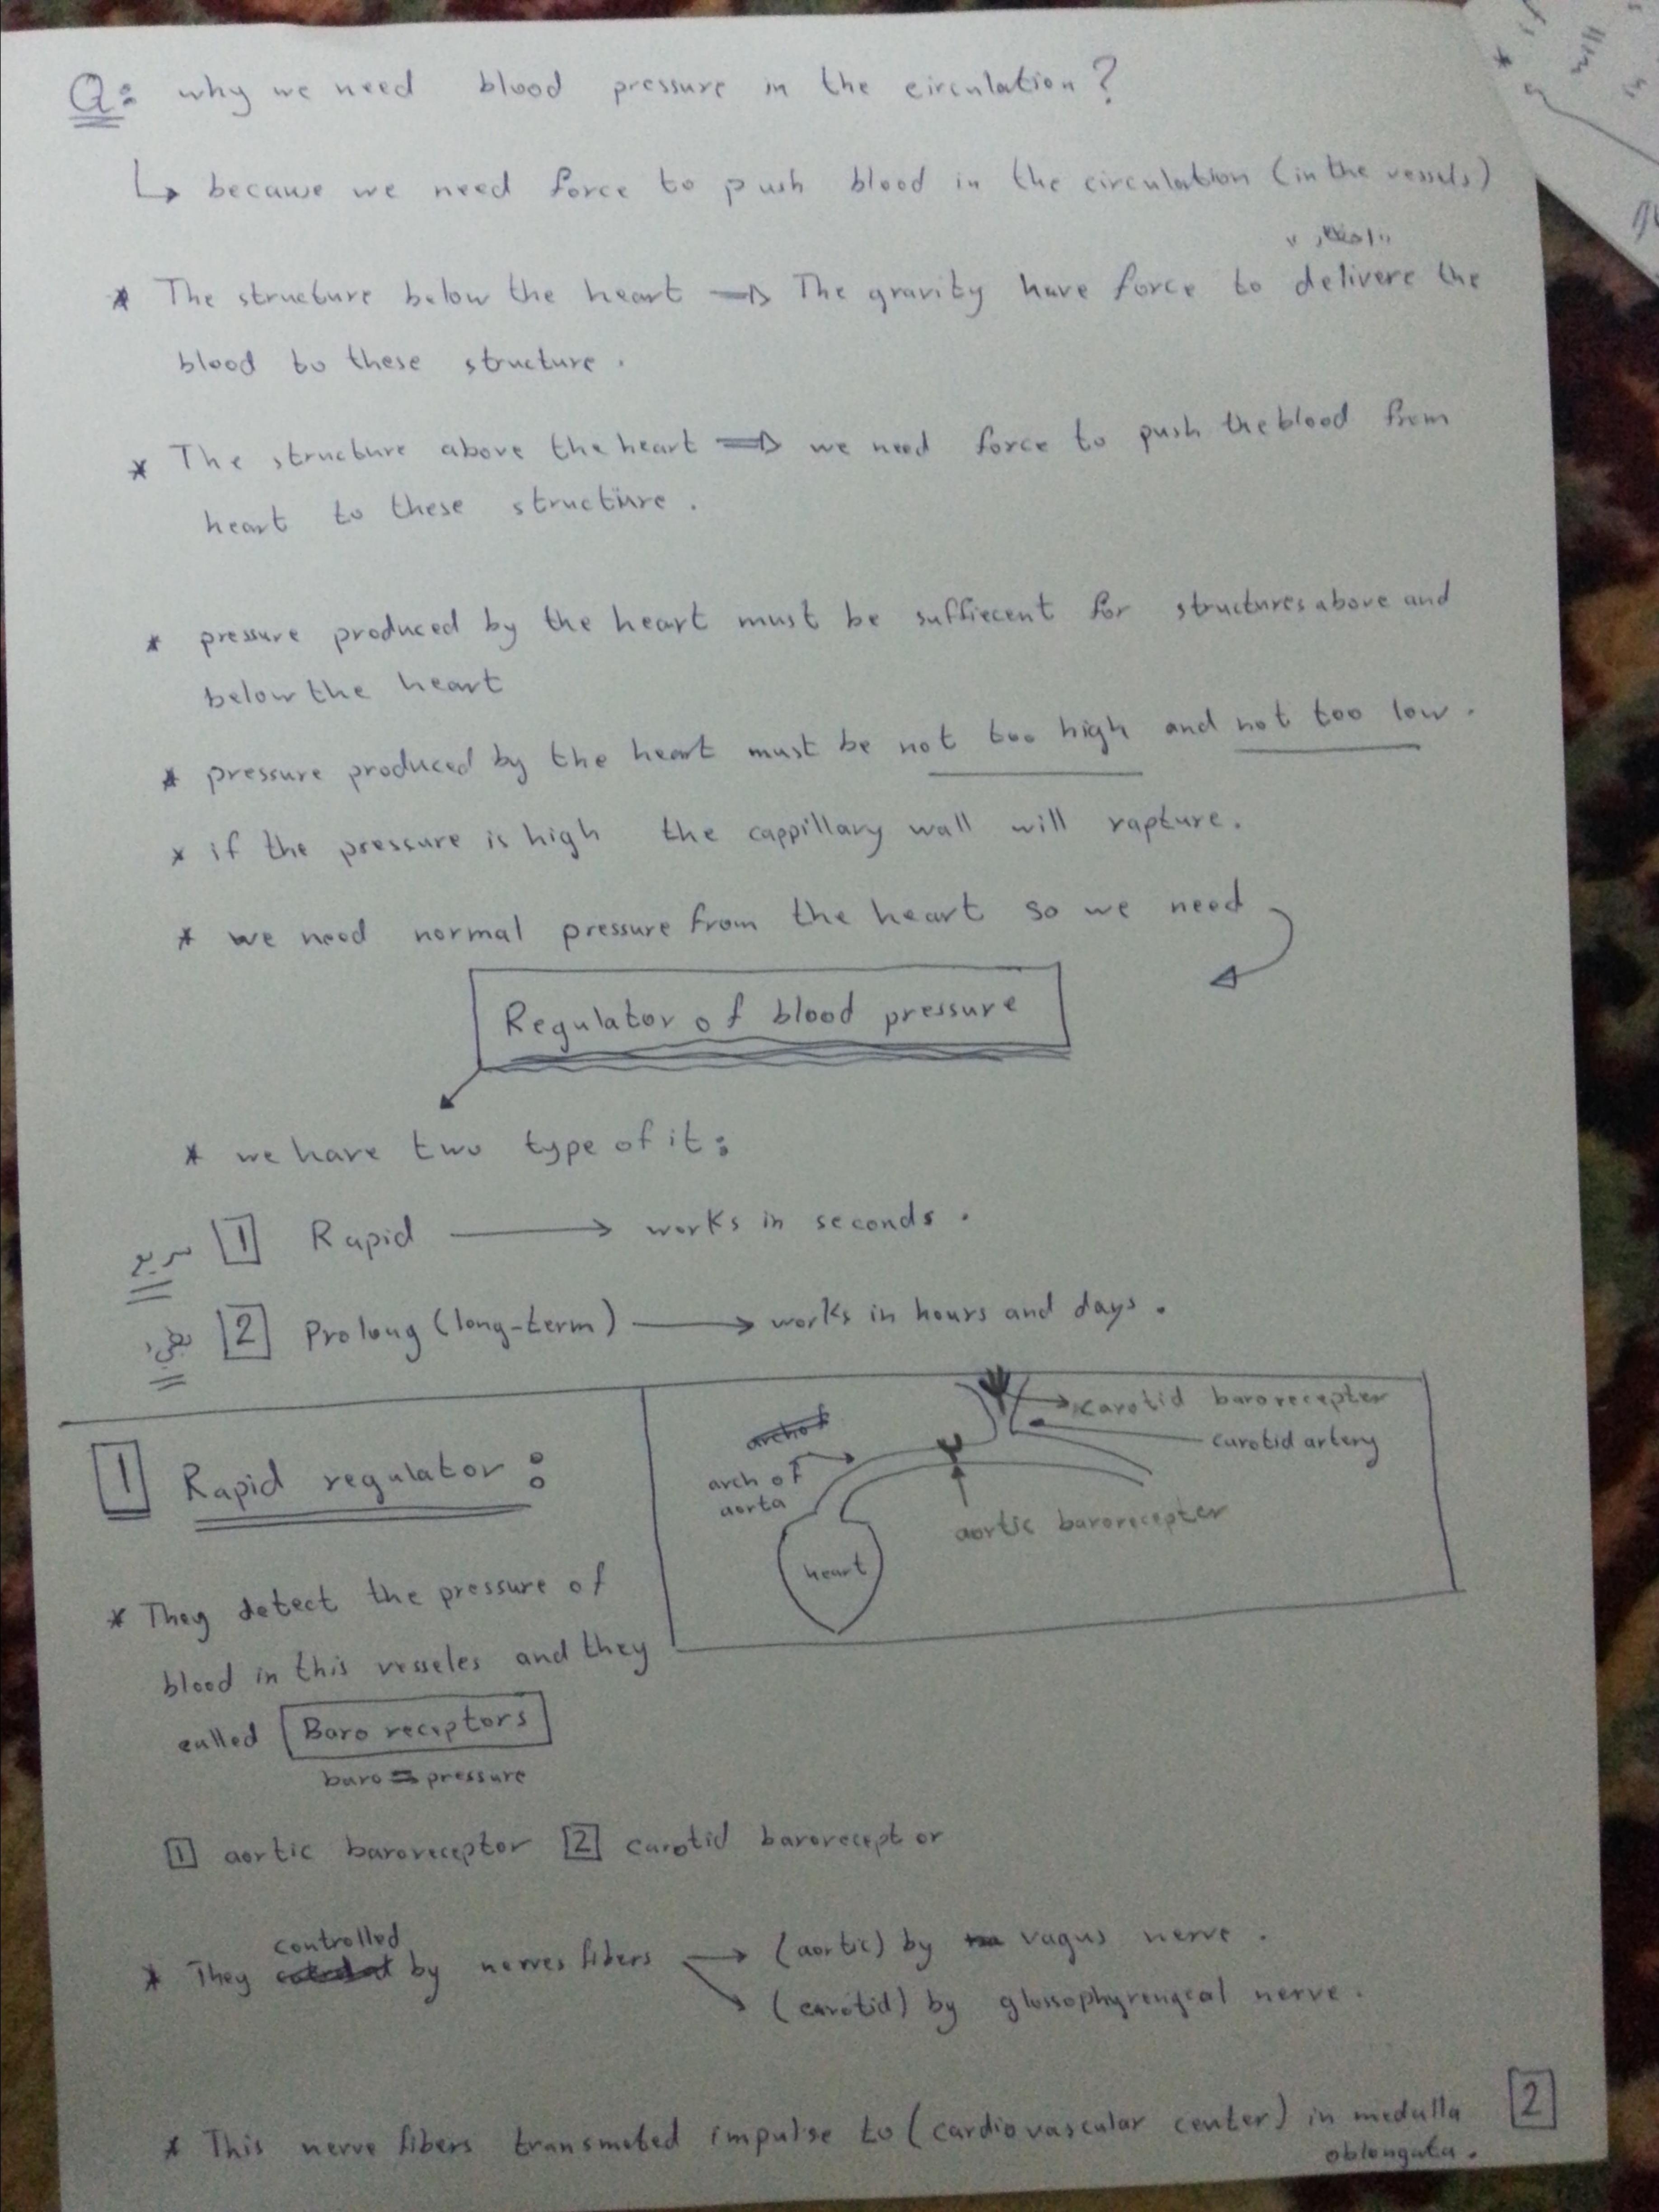 Q: why we need blood pressure in the circulation?
↳ because we need force to push blood in the circulation (in the vessels)
* The structure below the heart ⇒ The gravity have force to delivere the
blood to these structure.
* The structure above the heart ⇒ we need force to push the blood from
heart to these structure.
* pressure produced by the heart must be suffiecent for structures above and
below the heart
* pressure produced by the heart must be not too high and not too low.
* if the pressure is high the cappillary wall will rapture.
* we need normal pressure from the heart so we need
Regulator of blood pressure
* we have two type of it:
سريع 1 Rapid → works in seconds.
بطيء 2 Prolong (long-term) → works in hours and days.
1 Rapid regulator:
carotid barorecepter
carotid artery
arch of
aorta
aortic barorecepter
heart
* They detect the pressure of
blood in this vesseles and they
called Baro receptors
baro = pressure
1 aortic baroreceptor 2 carotid baroreceptor
controlled
* They by nerves fibers → (aortic) by vagus nerve.
(carotid) by glossophyrengeal nerve.
* This nerve fibers transmeted impulse to (cardiovascular center) in medulla
oblongata.
2